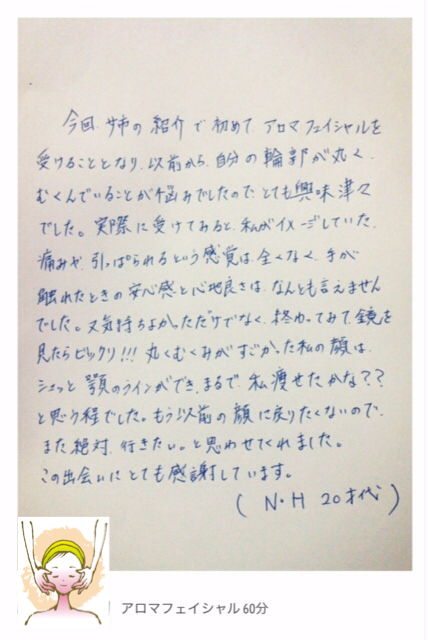 今回、姉の紹介で初めて、アロマフェイシャルを
受けることとなり、以前から、自分の輪郭が丸く、
むくんでいることが悩みでしたので、とても興味津々
でした。実際に受けてみると、私がイメージしていた、
痛みや、引っぱられるという感覚は、全くなく、手が
触れたときの安心感と心地良さは、なんとも言えません
でした。又、気持ちよかっただけでなく、終わってみて、鏡を
見たらビックリ!!! 丸くむくみがすごかった私の顔は、
シュッと 顎のラインができ、まるで、私痩せたかな??
と思う程でした。もう以前の顔に戻りたくないので、
また絶対、行きたい。と思わせてくれました。
この出会いにとても感謝しています。
(N・H 20才代)
アロマフェイシャル 60分